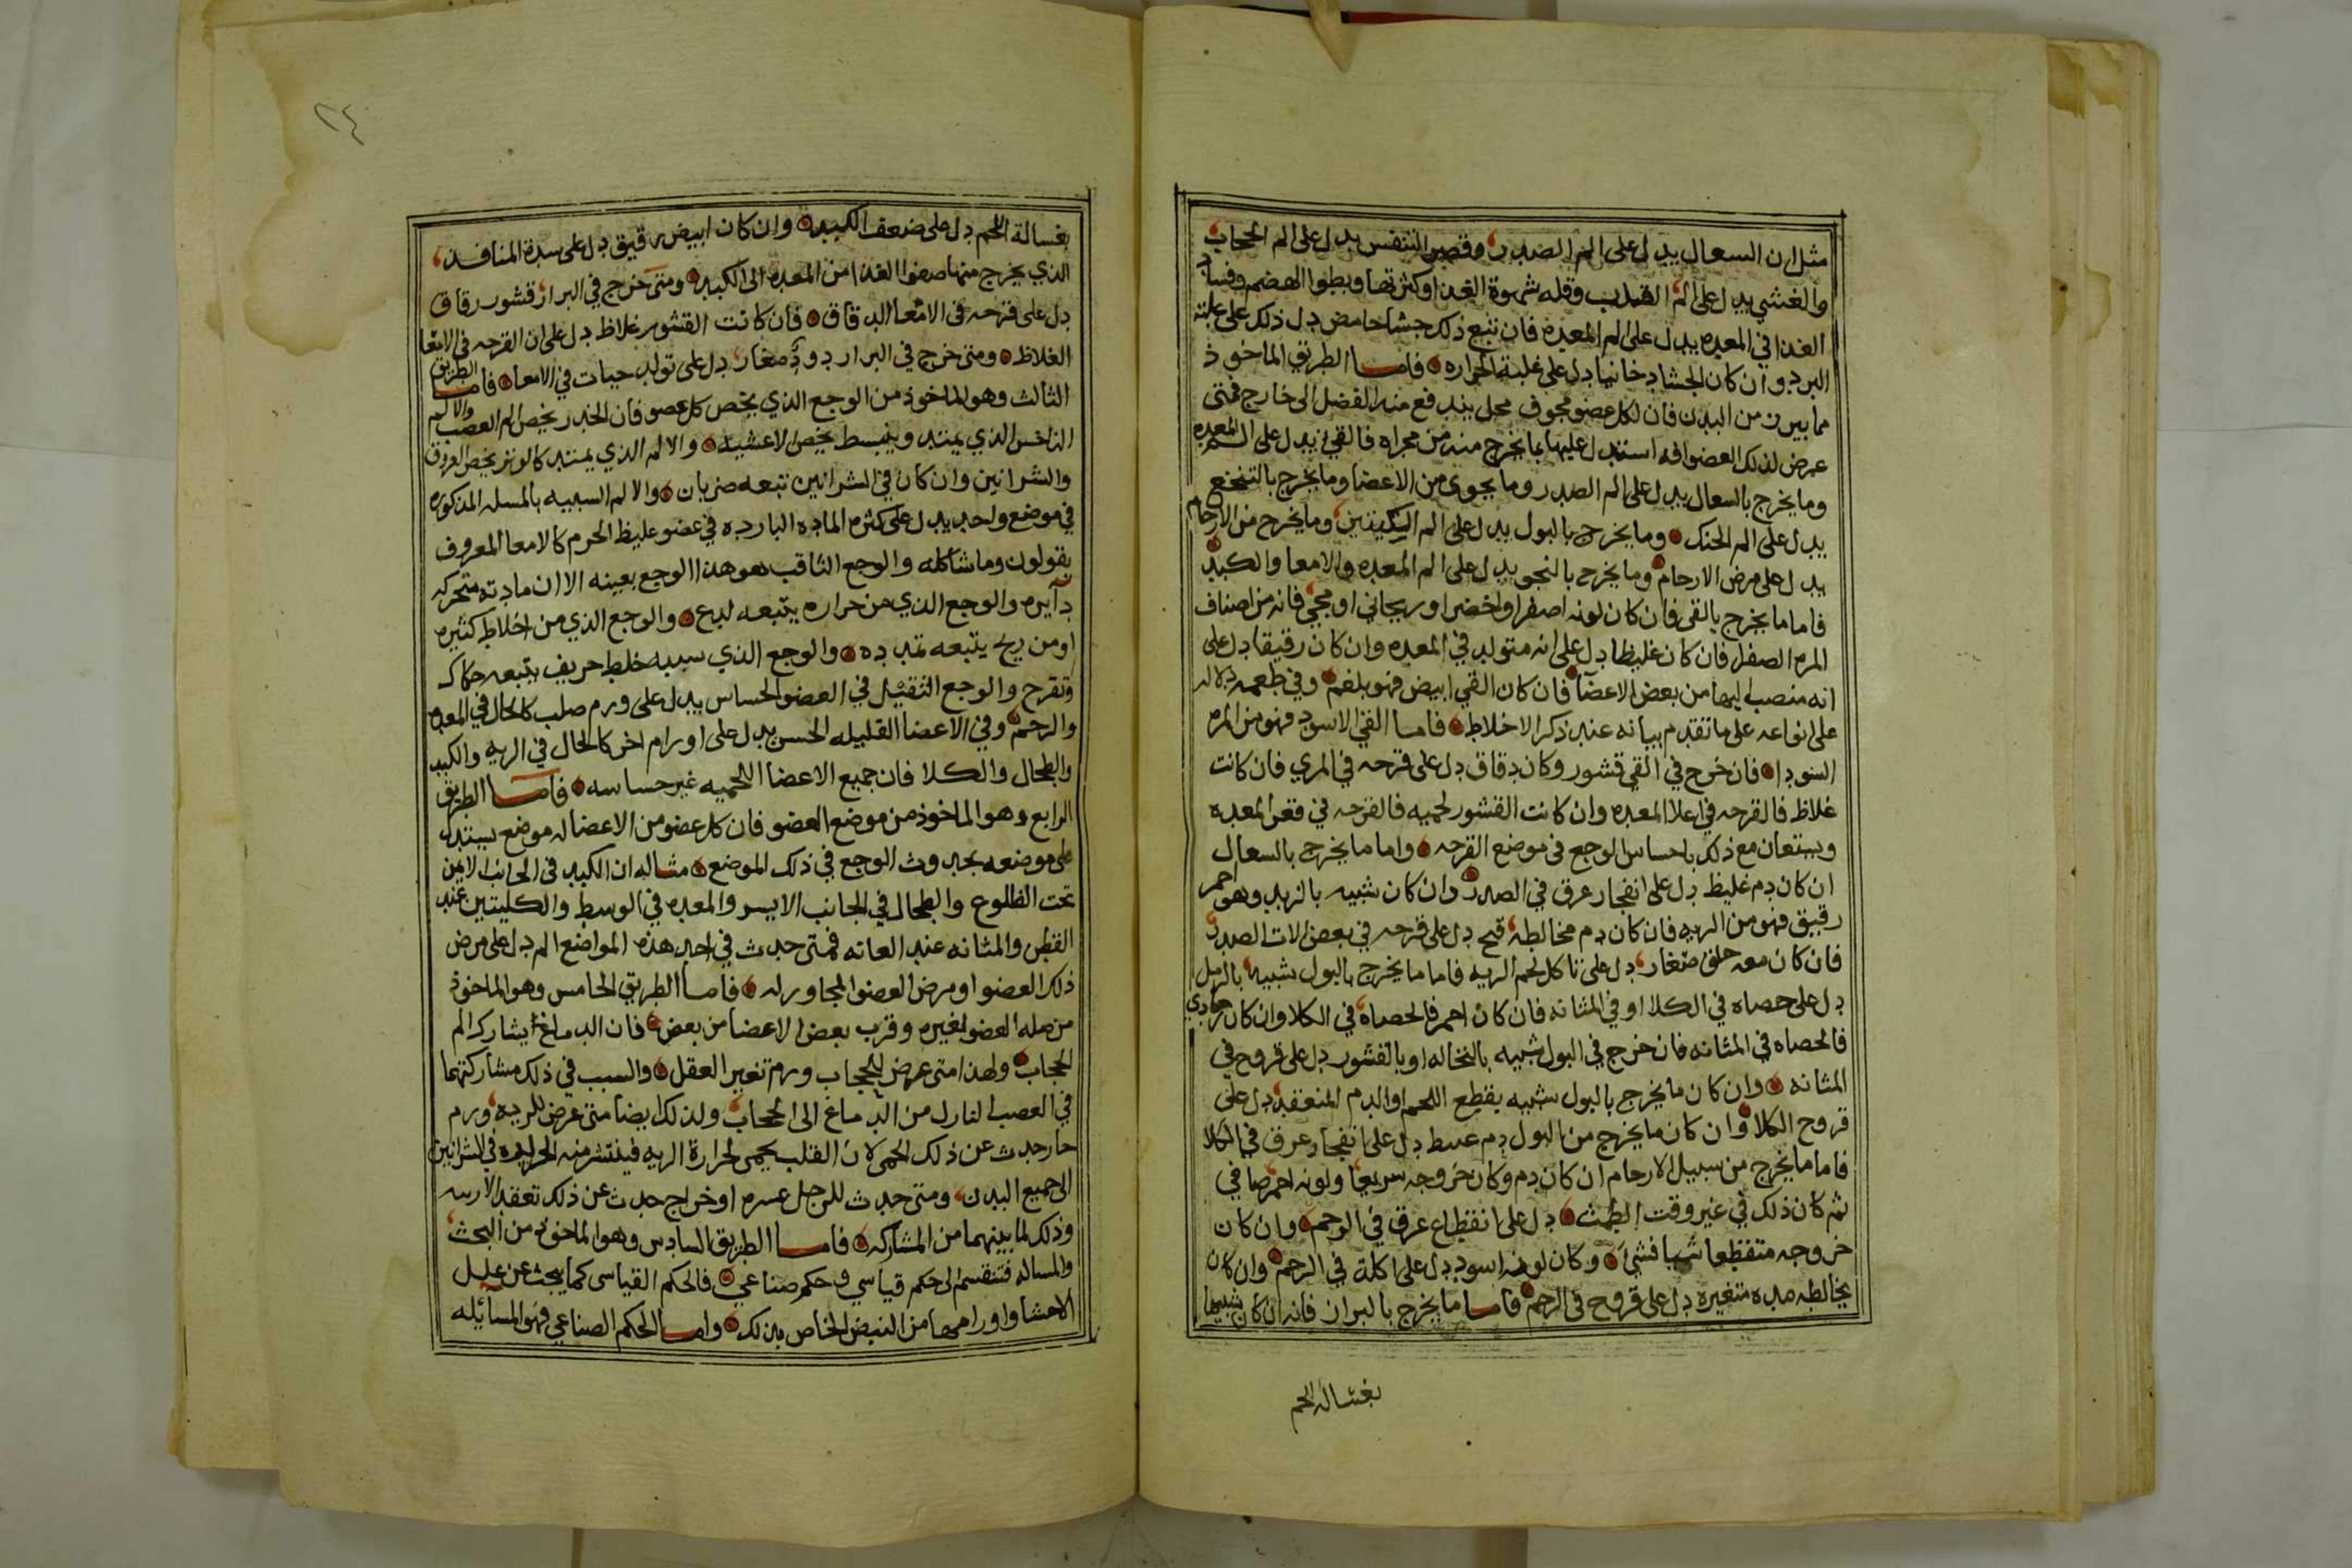 مثل ان السعال يدل على الم الصدر وقصر التنفس يدل على الم الحجاب
والغشي يدل على الم القلب وقله شهوة الغذا وكثرتها وبطوا الهضم وفساد
الغذا في المعده يدل على الم المعده فان تبع ذلك جشا حامض دل ذلك على غلبة
البرد وان كان الجشا دخانيا دل على غلبة الحراره فاما الطريق الماخوذ
مما يبرز من البدن فان لكل عضو مجوف محل يندفع منه الفضل الى خارج فمتى
عرض لذلك العضو افه استدل عليها بما يخرج منه من مجراه فالقي يدل على الم المعده
وما يخرج بالسعال يدل على الم الصدر وما يحوى من الاعضا وما يخرج بالتنخع
يدل على الم الحنك وما يخرج بالبول يدل على الم الكليتين وما يخرج من الارحام
يدل على مرض الارحام وما يخرج بالنجو يدل على الم المعده والامعا والكبد
فاما ما يخرج بالقي فان كان لونه اصفر او اخضر او ريحاني او محي فانه من اصناف
المره الصفرا فان كان غليظا دل على انه متولد في المعده وان كان رقيقا دل على
انه منصب اليها من بعض الاعضا فان كان القي ابيض فهو بلغم وفي طعمه دلاله
على انواعه على ما تقدم بيانه عند ذكر الاخلاط فاما القي الاسود فهو من المره
السودا فان خرج في القي قشور وكان دقاق دل على قرحه في المري فان كانت
غلاظ فالقرحه في اعلا المعده وان كانت القشور لحميه فالقرحه في قعر المعده
ويستعان مع ذلك باحساس الوجع في موضع القرحه واما ما يخرج بالسعال
ان كان دم غليظ دل على انفجار عرق في الصدر وان كان شبيه بالزبد وهو احمر
رقيق فهو من الريه فان كان دم مخالطه قيح دل على قرحه في بعض الات الصدر
فان كان معه حلق صغار دل على تاكل لحم الريه فاما ما يخرج بالبول شبيه بالرمل
دل على حصاه في الكلا او في المثانه فان كان احمر فالحصاه في الكلا وان كان رمادي
فالحصاه في المثانه فان خرج في البول شبيه بالنخاله او بالقشور دل على قروح في
المثانه وان كان ما يخرج بالبول شبيه بقطع اللحم او الدم المنعقد دل على
قروح الكلا وان كان ما يخرج من البول دم عبيط دل على انفجار عرق في الكلا
فاما ما يخرج من سبيل الارحام ان كان دم وكان خروجه سريعا ولونه احمر صافي
ثم كان ذلك في غير وقت الطمث دل على انقطاع عرق في الرحم وان كان
خروجه متقطعا شيا فشي وكان لونه اسود دل على اكلة في الرحم وان كان
يخالطه مده متغيرة دل على قروح في الرحم فاما ما يخرج بالبراز فانه ان كان شبيها
بغسالة لحم
٢٤
بغسالة اللحم دل على ضعف الكبد وان كان ابيض رقيق دل على سدة المنافذ
الذي يخرج منها صفوا الغذا من المعده الى الكبد ومتى خرج في البراز قشور رقاق
دل على قرحه في الامعا الدقاق فان كانت القشور غلاظ دل على ان القرحه في الامعا
الغلاظ ومتى خرج في البراز دود صغار دل على تولد حيات في الامعا فاما الطريق
الثالث وهو الماخوذ من الوجع الذي يخص كل عضو فان الخدر يخص الم العصب والالم
الناخس الذي يمتد وينبسط يخص الاغشيه والالم الذي يمتد كالوتر يخص العروق
والشرانين وان كان في الشرانين تبعه ضربان والالم الشبيه بالمسله المذكوره
في موضع واحد يدل على كثره الماده البارده في عضو غليظ الجرم كالامعا المعروف
بقولون وما شاكله والوجع الثاقب هو هذا الوجع بعينه الا ان مادته متحركه
دآيره والوجع الذي من حراره يتبعه لدع والوجع الذي من اخلاط كثيره
او من ريح يتبعه تمدده والوجع الذي سببه خلط حريف يتبعه حكاك
وتقرح والوجع الثقيل في العضو الحساس يدل على ورم صلب كالحال في المعده
والرحم وفي الاعضا القليله الحس يدل على اورام اخر كالحال في الريه والكبد
والطحال والكلا فان جميع الاعضا اللحميه غير حساسه فاما الطريق
الرابع وهو الماخوذ من موضع العضو فان كل عضو من الاعضا له موضع يستدل
على موضعه بحدوث الوجع في ذلك الموضع مثاله ان الكبد في الجانب الايمن
تحت الظلوع والطحال في الجانب الايسر والمعده في الوسط والكليتين عند
القطن والمثانه عند العانه فمتى حدث في احد هذه المواضع الم دل على مرض
ذلك العضو او مرض العضو المجاور له فاما الطريق الخامس وهو الماخوذ
من صله العضو لغيره وقرب بعض الاعضا من بعض فان الدماغ يشارك الم
الحجاب ولهذا متى عرض للحجاب ورم تغير العقل والسبب في ذلك مشاركتهما
في العصب النازل من الدماغ الى الحجاب ولذلك ايضا متى عرض للريه ورم
حار حدث عن ذلك الحمى لان القلب يحمى لحرارة الريه فينتشر منه الحراره في الشرانين
الى جميع البدن ومتى حدث للرجل عسره او خراج حدث عن ذلك تعقد الاربيه
وذلك لما بينهما من المشاركه فاما الطريق السادس وهو الماخوذ من البحث
والمساله فتنقسم الى حكم قياسي وحكم صناعي فالحكم القياسى كما يبحث عن علل
الاحشا واورامها من النبض الخاص بذلك واما الحكم الصناعي فهو المسائيله